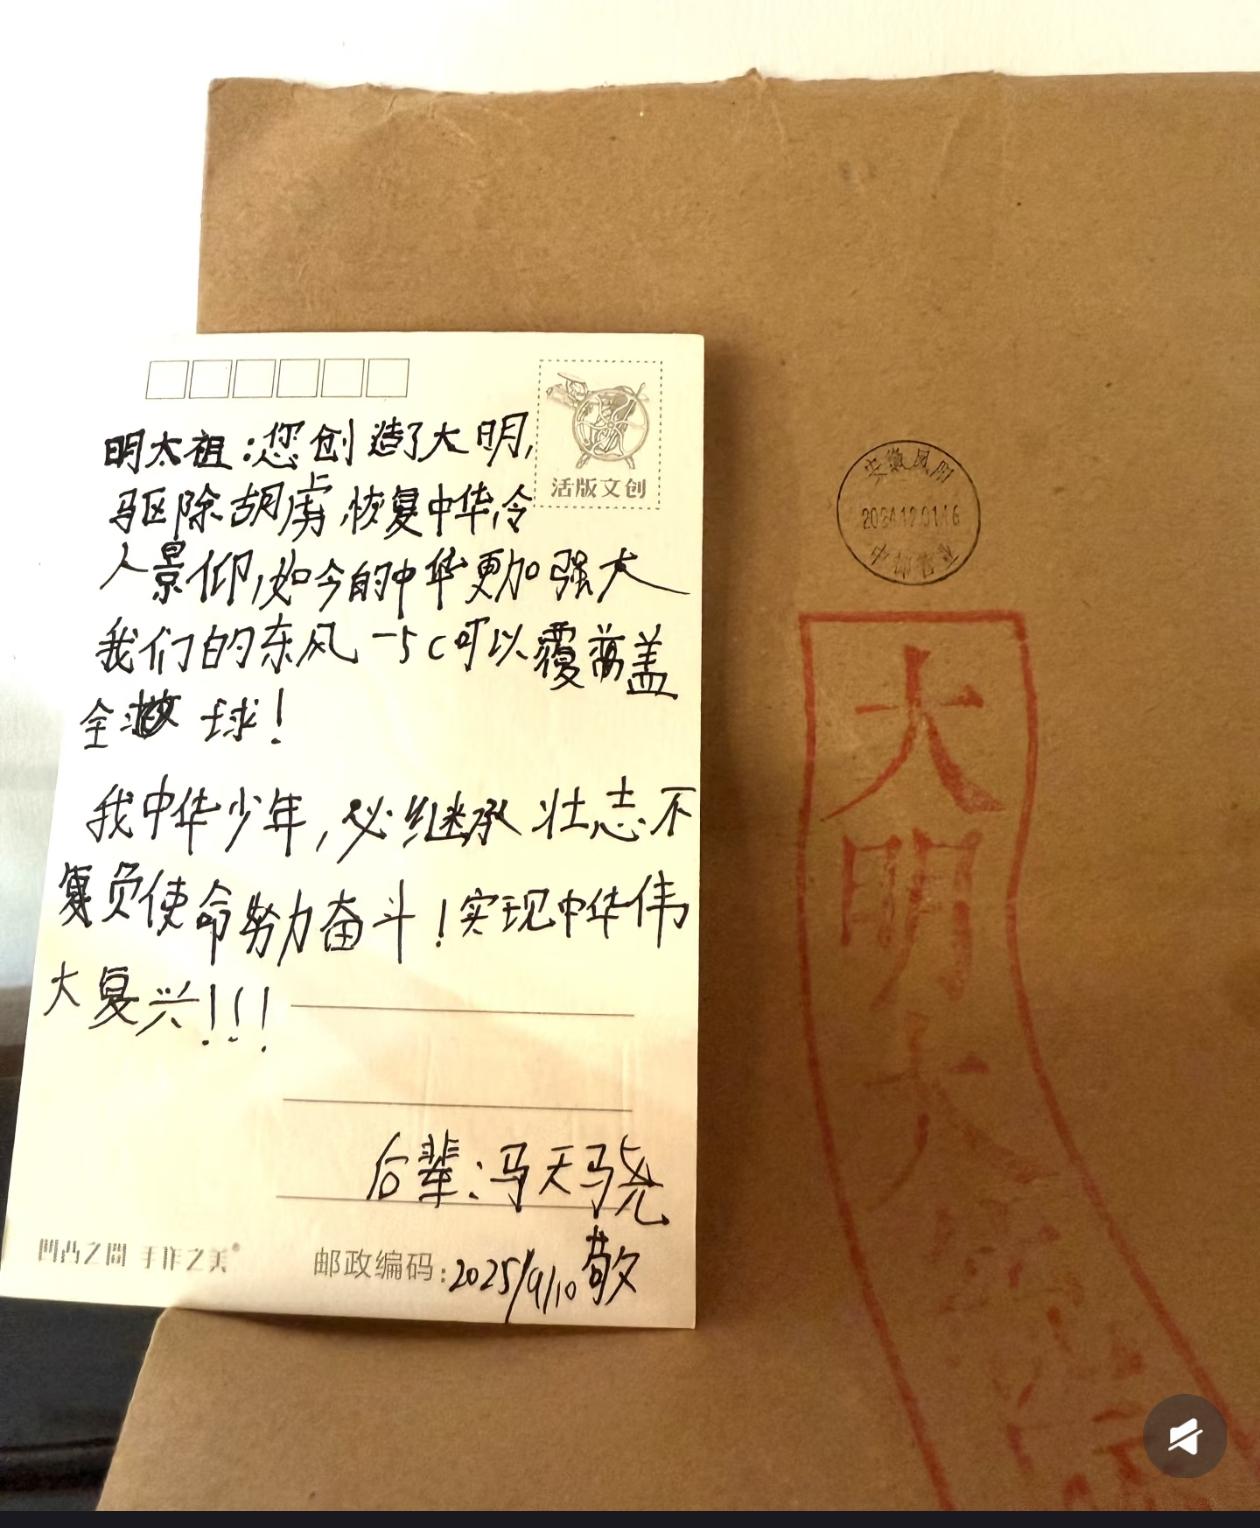 活版文创
明太祖：您创造了大明，
驱除胡虏，恢复中华，令
人景仰，如今的中华更加强大
我们的东风-5C可以覆盖
全球！
我中华少年，必继承壮志不
负使命努力奋斗！实现中华伟
大复兴！！！
后辈：马天骁
敬
邮政编码：2025/9/10
凹凸之間 手作之美
安徽凤阳
大
明
大